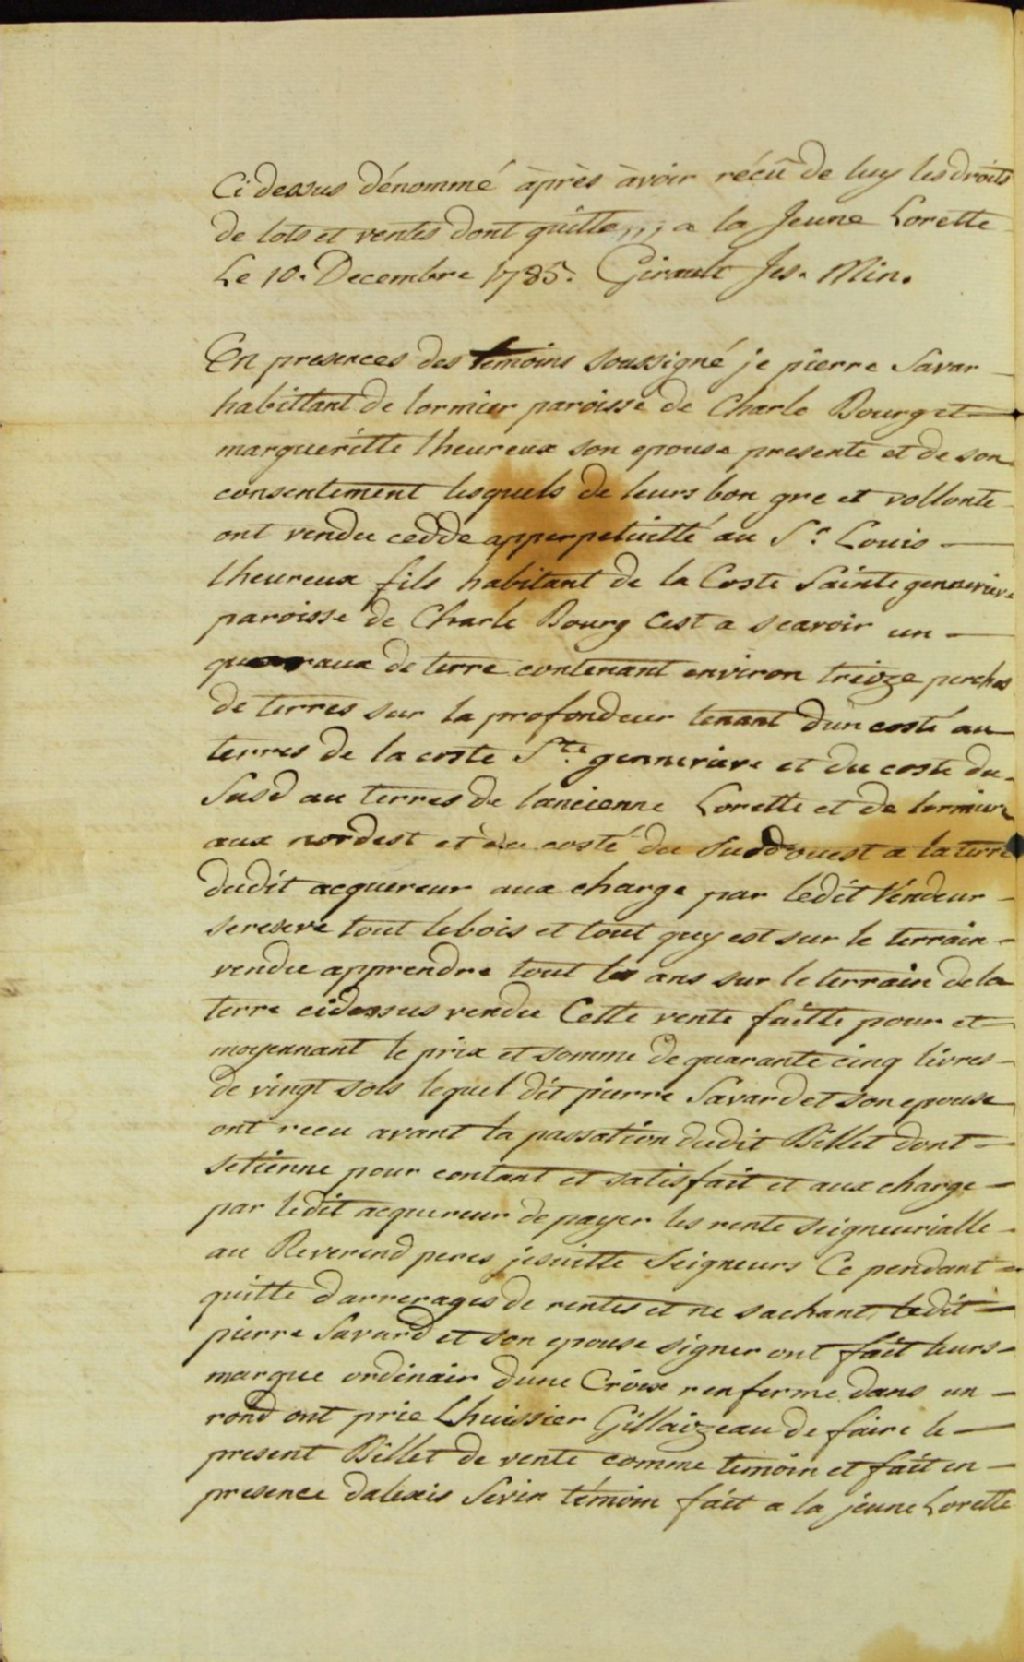 Ci dessus dénommé àprès àvoir réçû de luy les droits
de lots et ventes dont quitte,,; a la Jeune Lorette
Le 10. Decembre 1785. Girault Jes. Min.
En presences des temoins soussigné je pierre Savar
habittant de lormier paroisse de Charle Bourg et
marguéritte lheureux son epouse presente et de son
consentement lesquels de leurs bon gre et vollonte
ont vendu cedde apperpetuitté au Sr. Louis
lheureux fils habitant de la Coste Sainte gennevieve
paroisse de Charle Bourg Cest a scavoir un
de terre contenant environ treize perches
de terres sur la profondeur tenant dun costé au
terres de la coste Ste. gennevieve et du coste du
Susd au terres de lancienne Lorette et de lormier
aux nordest et du costé du Sudd ouest a la terre
dudit acquereur aux charge par ledit Véndeur
sereserve tout lebois et tout quy est sur le terrain
vendu apprendre tout les ans sur le terrain dela
terre cidessus vendu Cette vente faitte pour et
moyennant le prix et somme de quarante cinq livres
de vingt sols lequel dit pierre Savard et son epouse
ont recu avant la passation dudit Billet dont
setienne pour contant et satisfait et aux charge
par ledit acquereur de payer les rente seigneurialle
au Reverend peres jesuitte Seigneurs Ce pendant
quitte darrerages de rentes et ne sachant ledit
pierre Savard et son epouse signer ont fait leurs
marque ordinair dune Croix renferme dans un
rond ont prie Lhuissier Gillaizeau de faire le
present Billet de vente comme temoin et fait en
presence dalexis Sevin témoin fait a la jeune Lorette